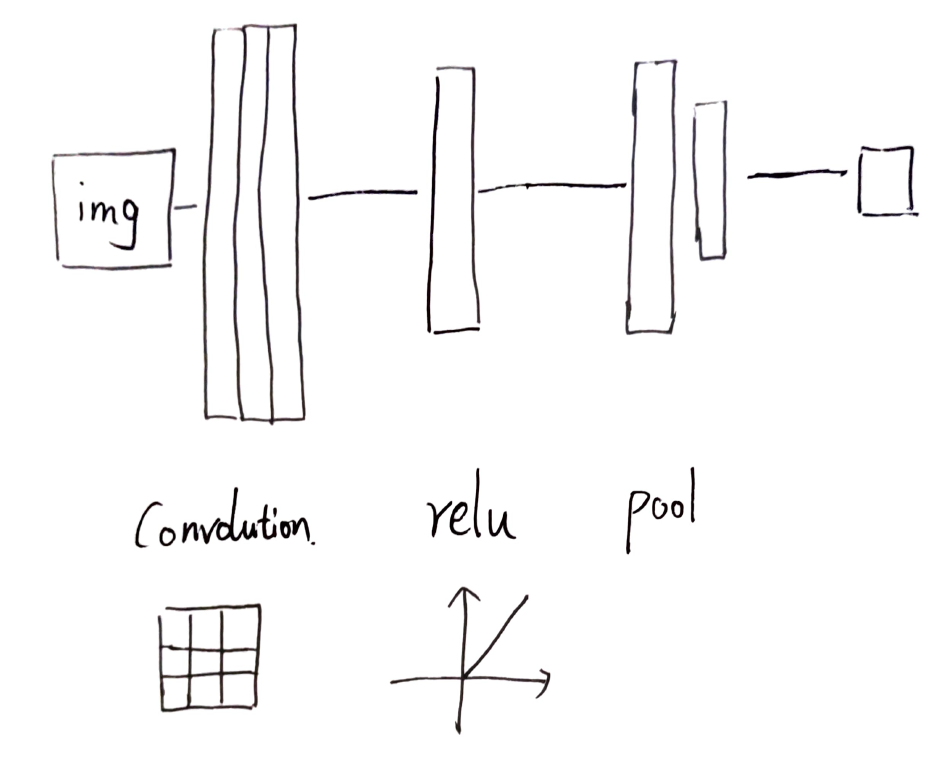 img
Convolution.
relu
pool